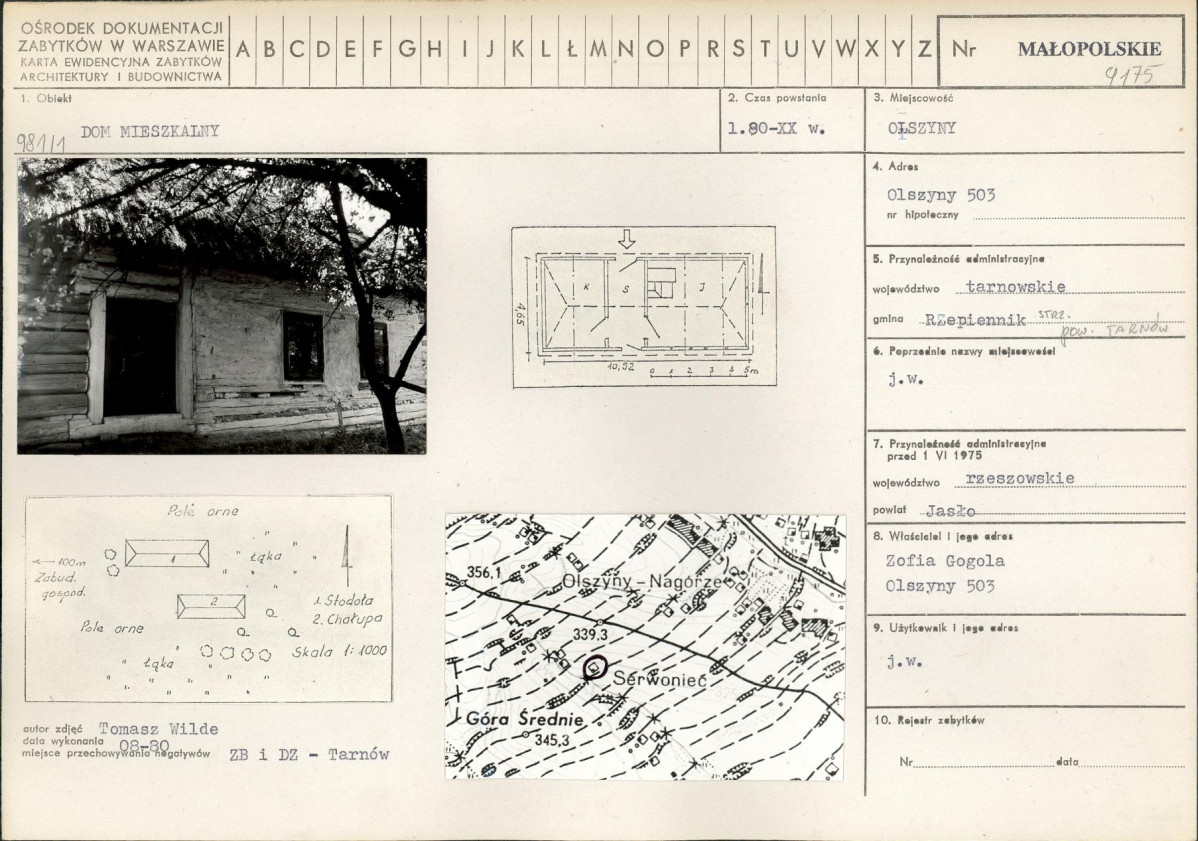 OŚRODEK DOKUMENTACJI
ZABYTKÓW W WARSZAWIE
KARTA EWIDENCYJNA ZABYTKÓW
ARCHITEKTURY I BUDOWNICTWA
A B C D E F G H I J K L Ł M N O P R S T U V W X Y Z
Nr MAŁOPOLSKIE
9175
1. Obiekt
981/1
DOM MIESZKALNY
2. Czas powstania
l.80-XX w.
3. Miejscowość
OLSZYNY
4. Adres
Olszyny 503
nr hipoteczny
5. Przynależność administracyjna
województwo tarnowskie
gmina Rzepiennik STRZ.
pow. TARNÓW
6. Poprzednie nazwy miejscowości
j.w.
7. Przynależność administracyjna
przed 1 VI 1975
województwo rzeszowskie
powiat Jasło
8. Właściciel i jego adres
Zofia Gogola
Olszyny 503
9. Użytkownik i jego adres
j.w.
10. Rejestr zabytków
Nr data
K S J
4,65
10,52
0 1 2 3 4 5m
Pole orne
100m
Zabud.
gospod.
1
Łąka
2
1. Stodoła
2. Chałupa
Pole orne
Łąka
Skala 1:1000
356,1
Olszyny-Nagórze
339,3
Serwoniec
Góra Średnie
345,3
autor zdjęć Tomasz Wilde
data wykonania 08-80
miejsce przechowywania negatywów ZB i DZ - Tarnów